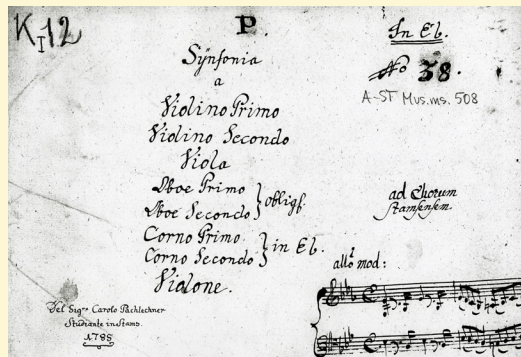 K I 12
P
In Eb.
No 38.
A-ST Mus.ms. 508
Synfonia
a
Violino Primo
Violino Secondo
Viola
Oboe Primo
Oboe Secondo } obligł.
Corno Primo
Corno Secondo } in Eb.
Violone.
ad Chorum
Stamsensem.
allo mod:
Del Sigre Carolo Pächlechner
Studiante in Stams.
1785